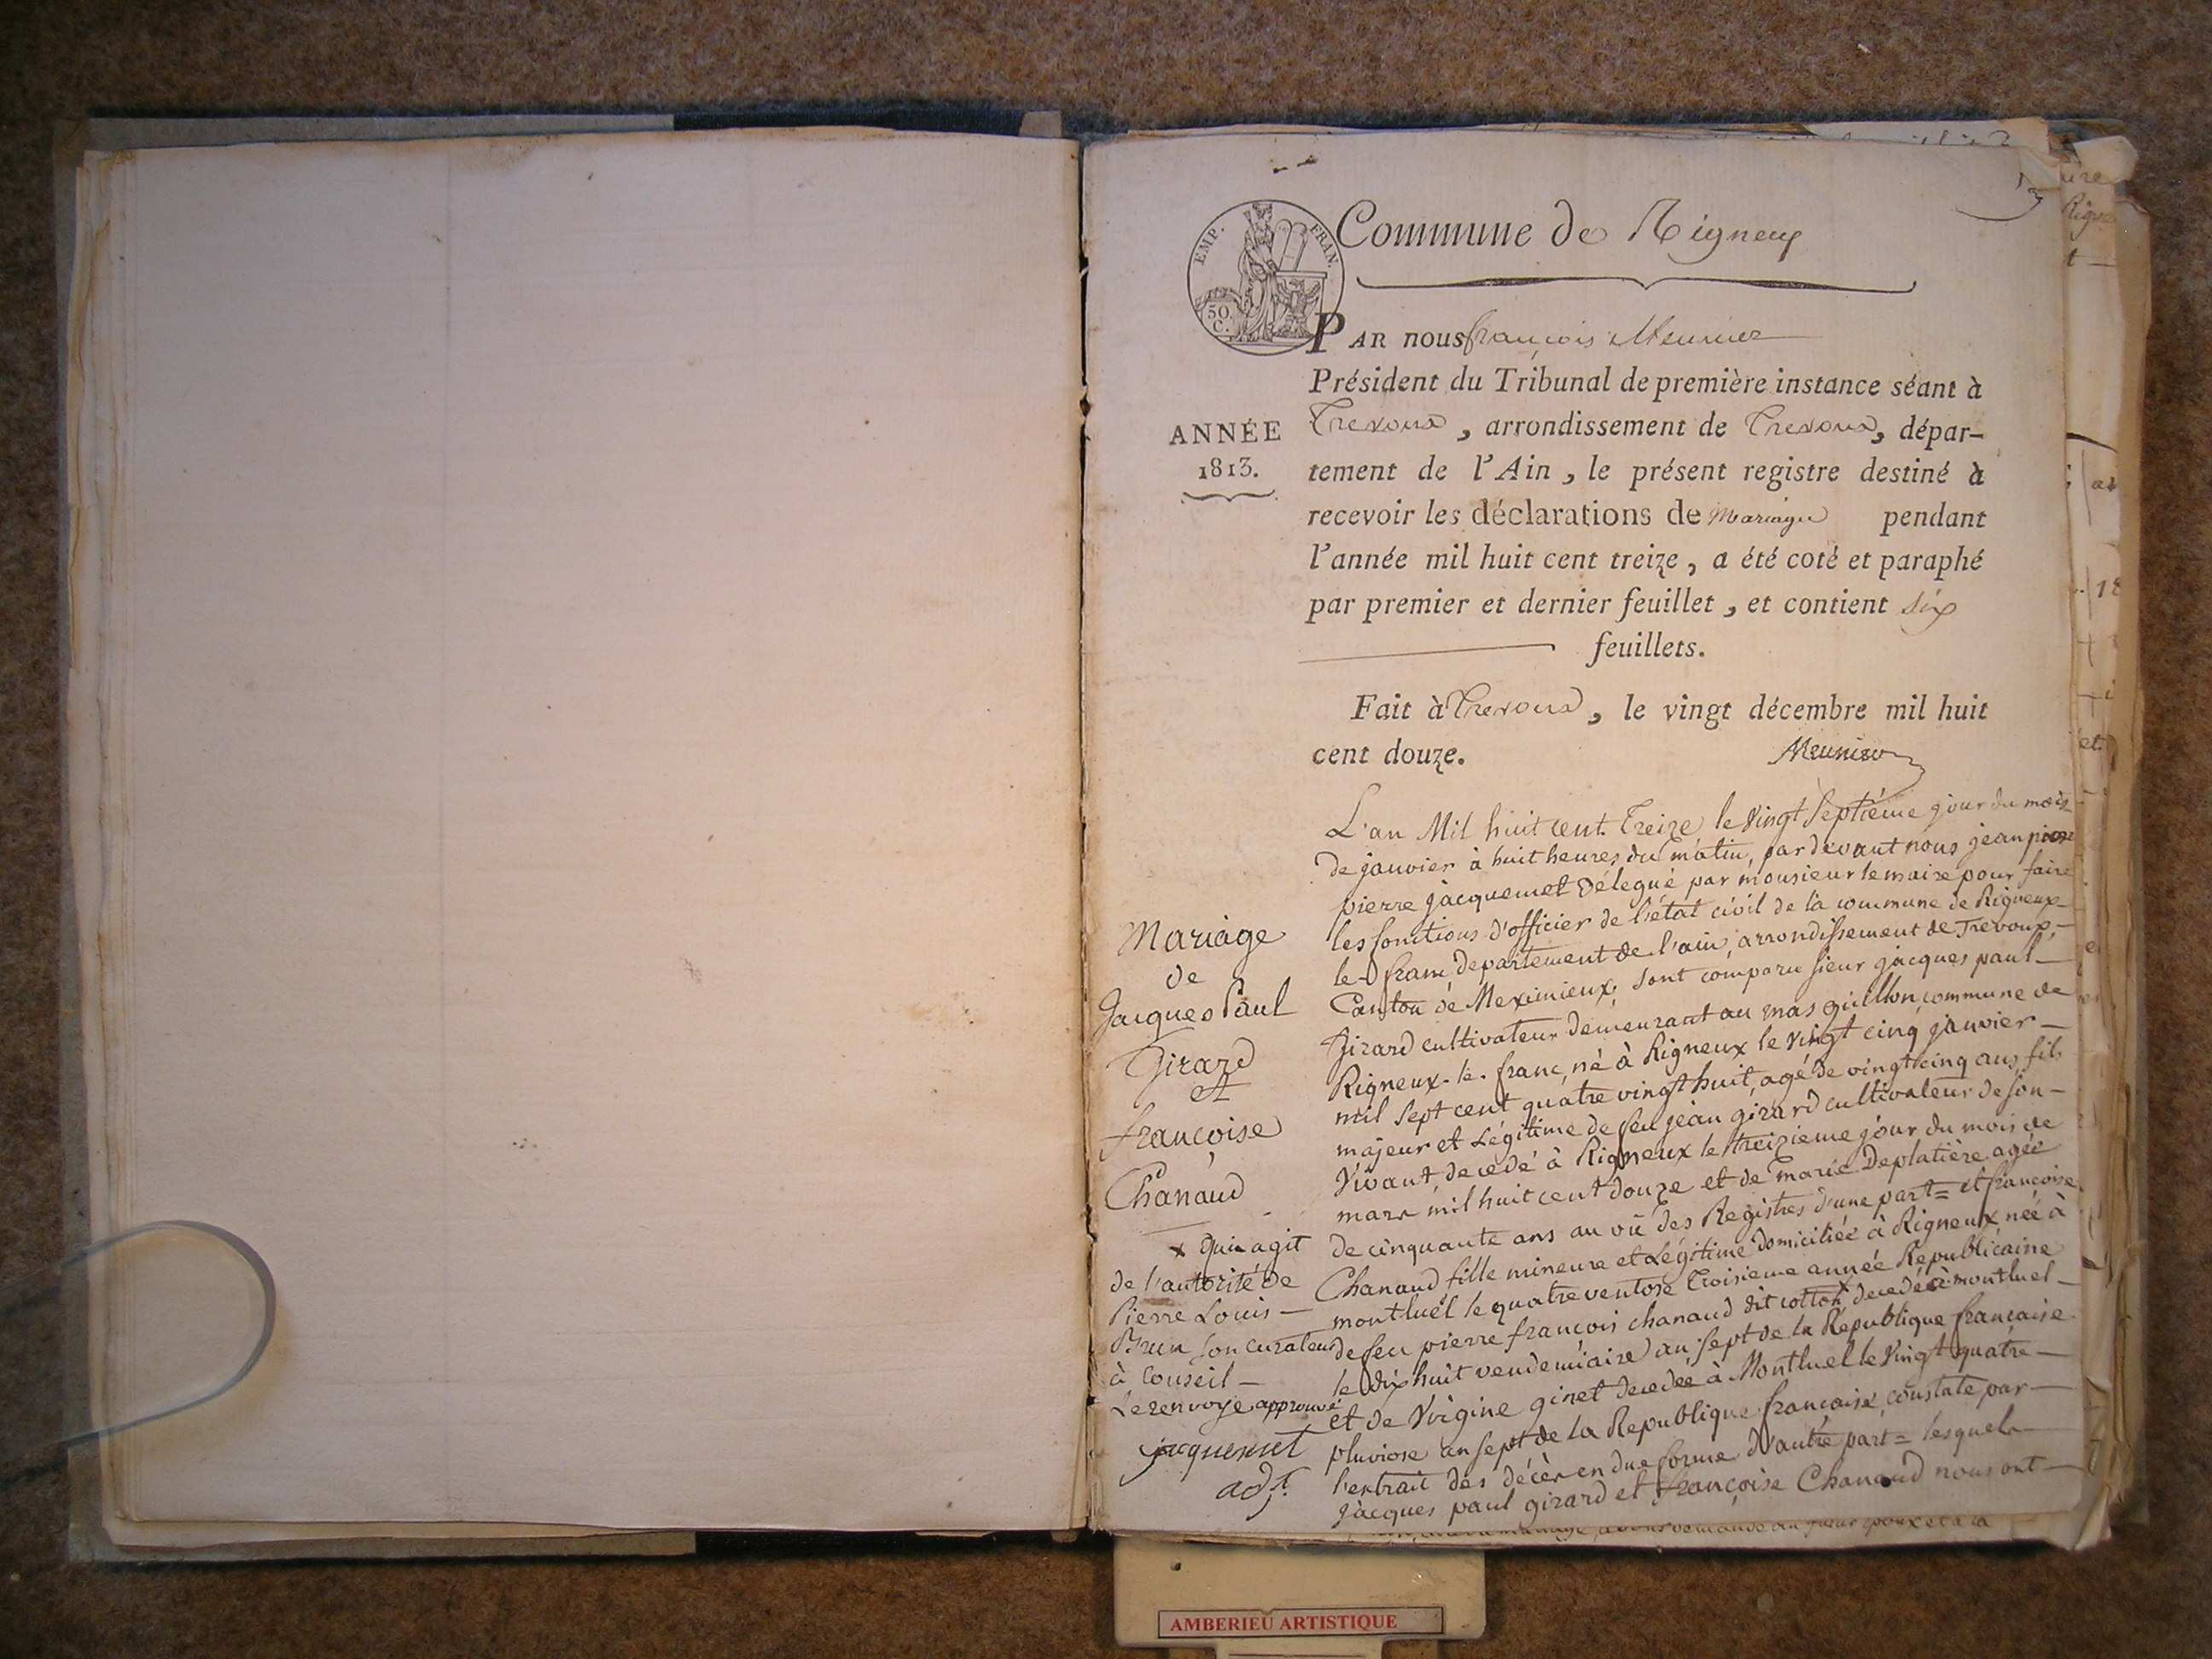 Commune de Rigneux
EMP. FRAN.
50.
C.
PAR nous françois Meunier
Président du Tribunal de première instance séant à
Trevoux, arrondissement de Trevoux, dépar-
tement de l'Ain, le présent registre destiné à
recevoir les déclarations de Mariages pendant
l'année mil huit cent treize, a été coté et paraphé
par premier et dernier feuillet, et contient six
feuillets.
Fait à Trevoux, le vingt décembre mil huit
cent douze.
Meunier
ANNÉE
1813.
L'an Mil huit cent Treize le Vingt Septiéme jour du mois
de janvier à huit heures du matin, par devant nous jean pierre
pierre jacquemet Délegué par monsieur le maire pour faire
les fonctions d'officier de l'état civil de la commune de Rigneux
le franc département de l'ain, arrondissement de Trevoux,
Canton de Meximieux, sont comparu sieur jacques paul
Girard cultivateur demeurant au mas guillon commune de
Rigneux-le-franc, né à Rigneux le vingt cinq janvier
mil sept cent quatre vingt huit, agé de vingt cinq ans, fils
majeur et Légitime de feu jean girard cultivateur de son
Vivant, decedé à Rigneux le treizieme jour du mois de
mars mil huit cent douze et de marie Deplatière agée
de cinquante ans au vû des Registres d'une part = et françoise
Chanaud fille mineure et Légitime domiciliée à Rigneux, née à
montluel le quatre ventose Troisieme année Républicaine
de feu pierre françois chanaud dit cotton decedé à montluel
le dix huit vendemiaire an sept de la République française
et de Virgine ginet decedée à Montluel le Vingt quatre
pluviose an sept de la Republique française, constate par
l'extrait des décès en due forme d'autre part = lesquels
jacques paul girard et françoise Chanaud nous ont
Mariage
de
Jacques Paul
Girard
et
françoise
Chanaud
x qui agit
de l'autorité de
Pierre Louis
Brun son curateur
à Conseil
Le renvoye approuvé
jacquemet
adt.
AMBERIEU ARTISTIQUE